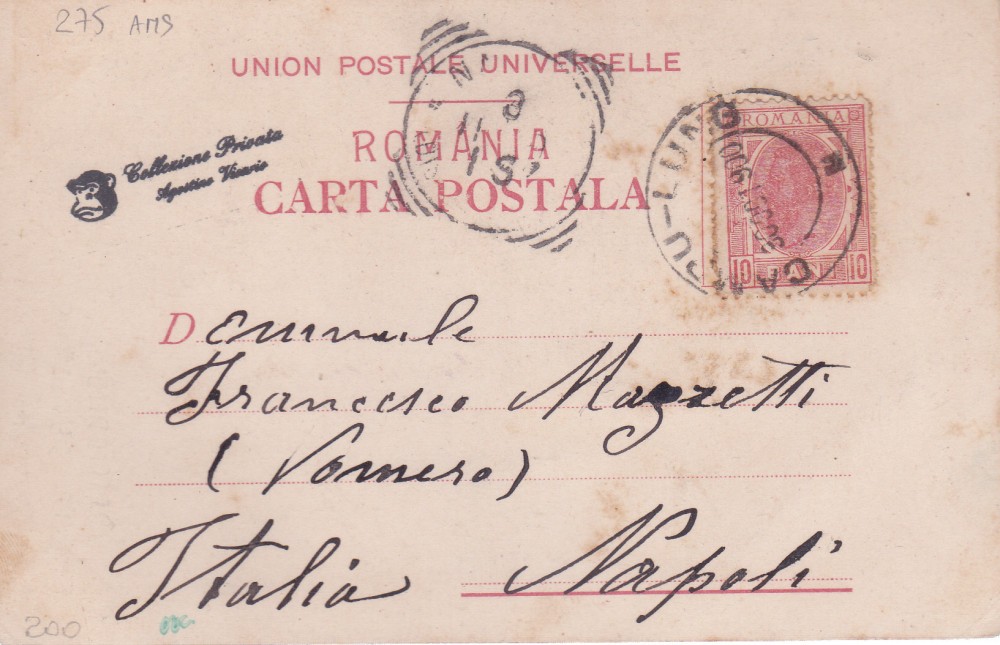 275 AMS
UNION POSTALE UNIVERSELLE
ROMANIA
CARTA POSTALA
Collezione Privata
Agostino Vicario
ROMANIA
10 BANI 10
CAMPU-LUNG
D
Francesco Mazzetti
(Vomero)
Italia Napoli
200